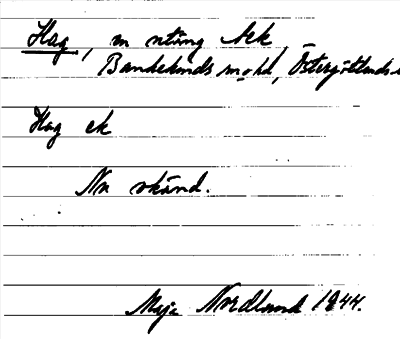 Hag, m ntäng Åek,
Bankekinds sn o hd, Östergötlands
Hag ek
Nn okänd.
Maja Nordlund 1944.